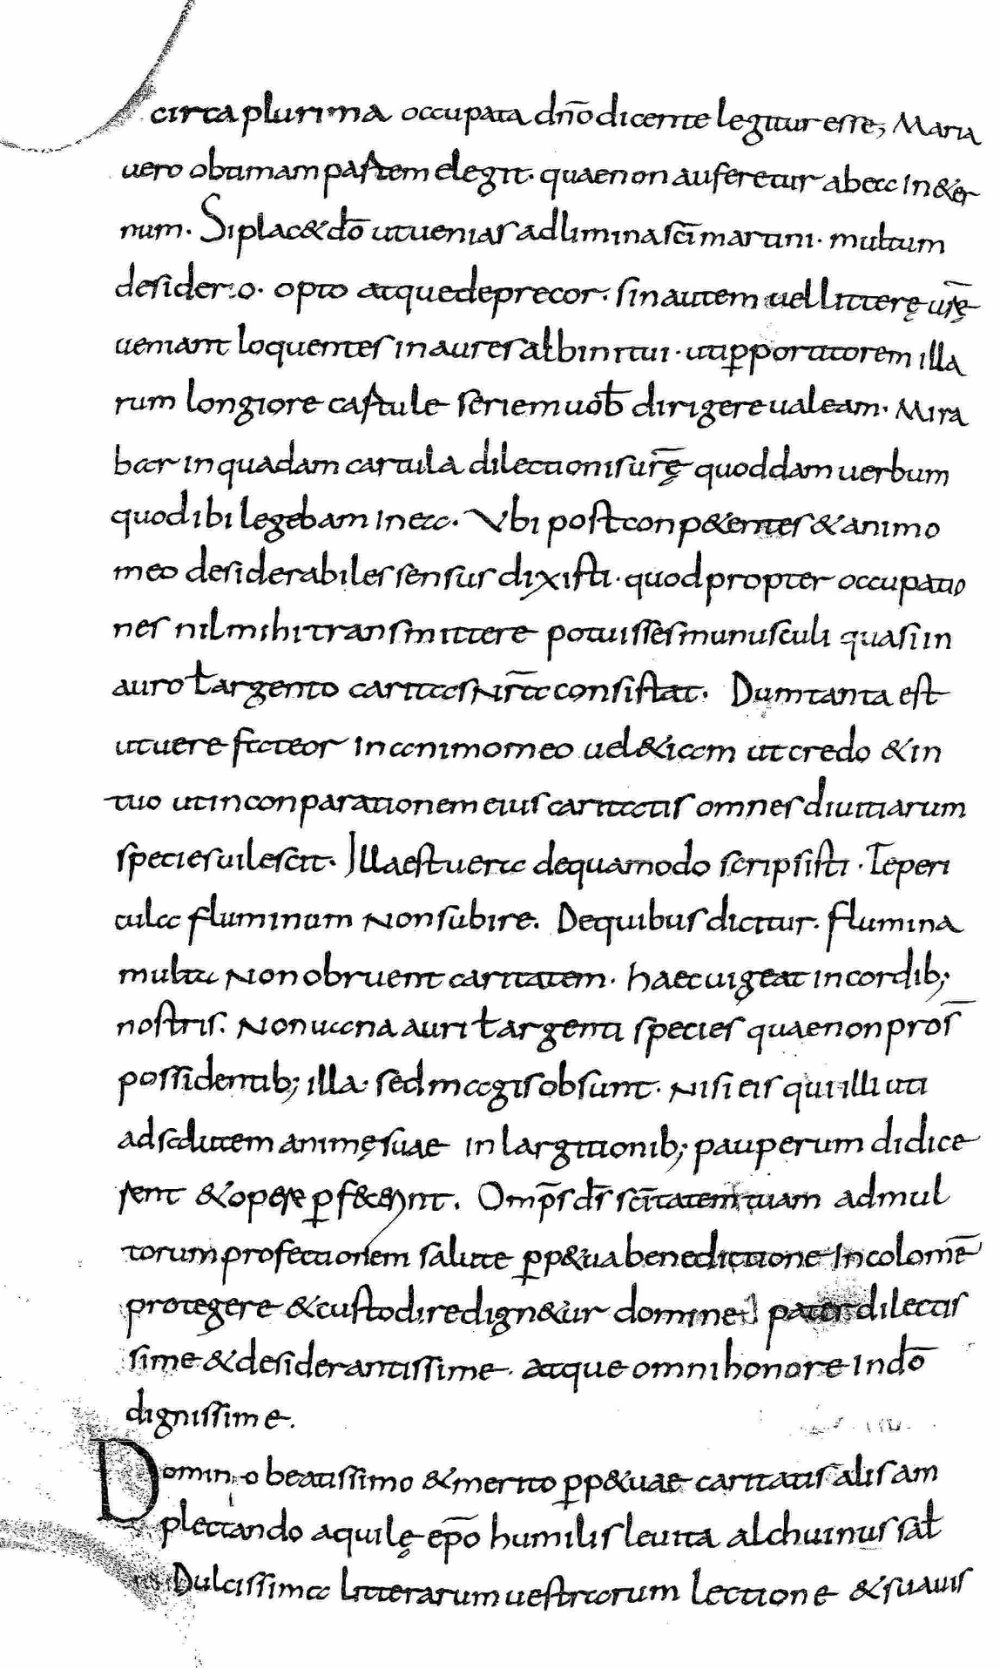 circa plurima occupata dn̄o dicente legitur esse; Maria
uero obtimam partem elegit· quae non auferetur ab ea In &er
num. Si plac& do̅ ut uenias ad limina sc̄i martini· multum
desiderio· opto atque deprecor· sin autem uel litterę ur̄ę
ueniant loquentes in aures albini tui· ut iꝑ portitorem illa
rum longiore cartule seriem uob̅ dirigere ualeam· Mira
bar in quadam cartula dilectionis ur̄ę quoddam uerbum
quod ibi legebam in ea· Vbi post conp&entes & animo
meo desiderabiles sensus dixisti· quod propter occupatio
nes nil mihi transmittere potuisses munusculi quasi in
auro ł argento caritas Nr̄a consistat· Dum tanta est
ut uere fateor in animo meo uel &iam ut credo & in
tuo ut in conparationem eius caritatis omnes diuitiarum
species uilescit· Illa est uera de qua modo scripsisti· Te peri
cula fluminum Non subire. De quibus dicitur· flumina
multa Non obruent caritatem· haec uigeat in cordib;
nostris. Non uana auri ł argenti species quae non pros̄
possidentib; illa· sed magis obsunt· Nisi eis qui illi uti
ad salutem animę suae in largitionib; pauperum didice
rent & opere ꝑfecerint. Omp̄s dr̄ sc̄itatem tuam ad mul
torum profectionem salute ꝑp&ua benedictione Incolomē
protegere & custodire dign&ur domine pater dilectis
sime & desiderantissime· atque omni honore In do̅
dignissime.
Domino beatissimo & merito ꝑp&uae caritatis alis am
plectando aquilę ep̄o humilis leuita alchuinus sał
Dulcissima litterarum uestrarum lectione & suauis